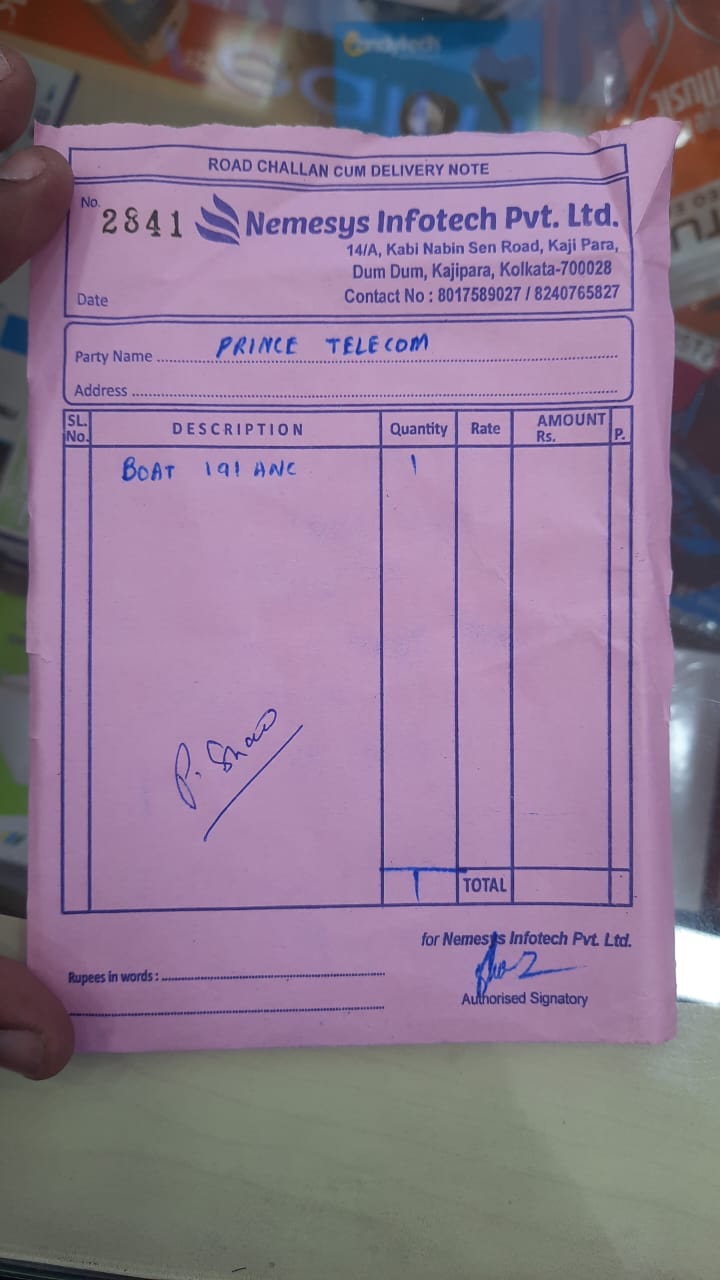 Candytech
ROAD CHALLAN CUM DELIVERY NOTE
No. 2841
Nemesys Infotech Pvt. Ltd.
14/A, Kabi Nabin Sen Road, Kaji Para,
Dum Dum, Kajipara, Kolkata-700028
Date
Contact No : 8017589027 / 8240765827
Party Name PRINCE TELECOM
Address
SL. No. DESCRIPTION Quantity Rate AMOUNT Rs. P.
BOAT 191 ANC 1
P. Shaw
1 TOTAL
for Nemesys Infotech Pvt. Ltd.
Rupees in words :
Authorised Signatory